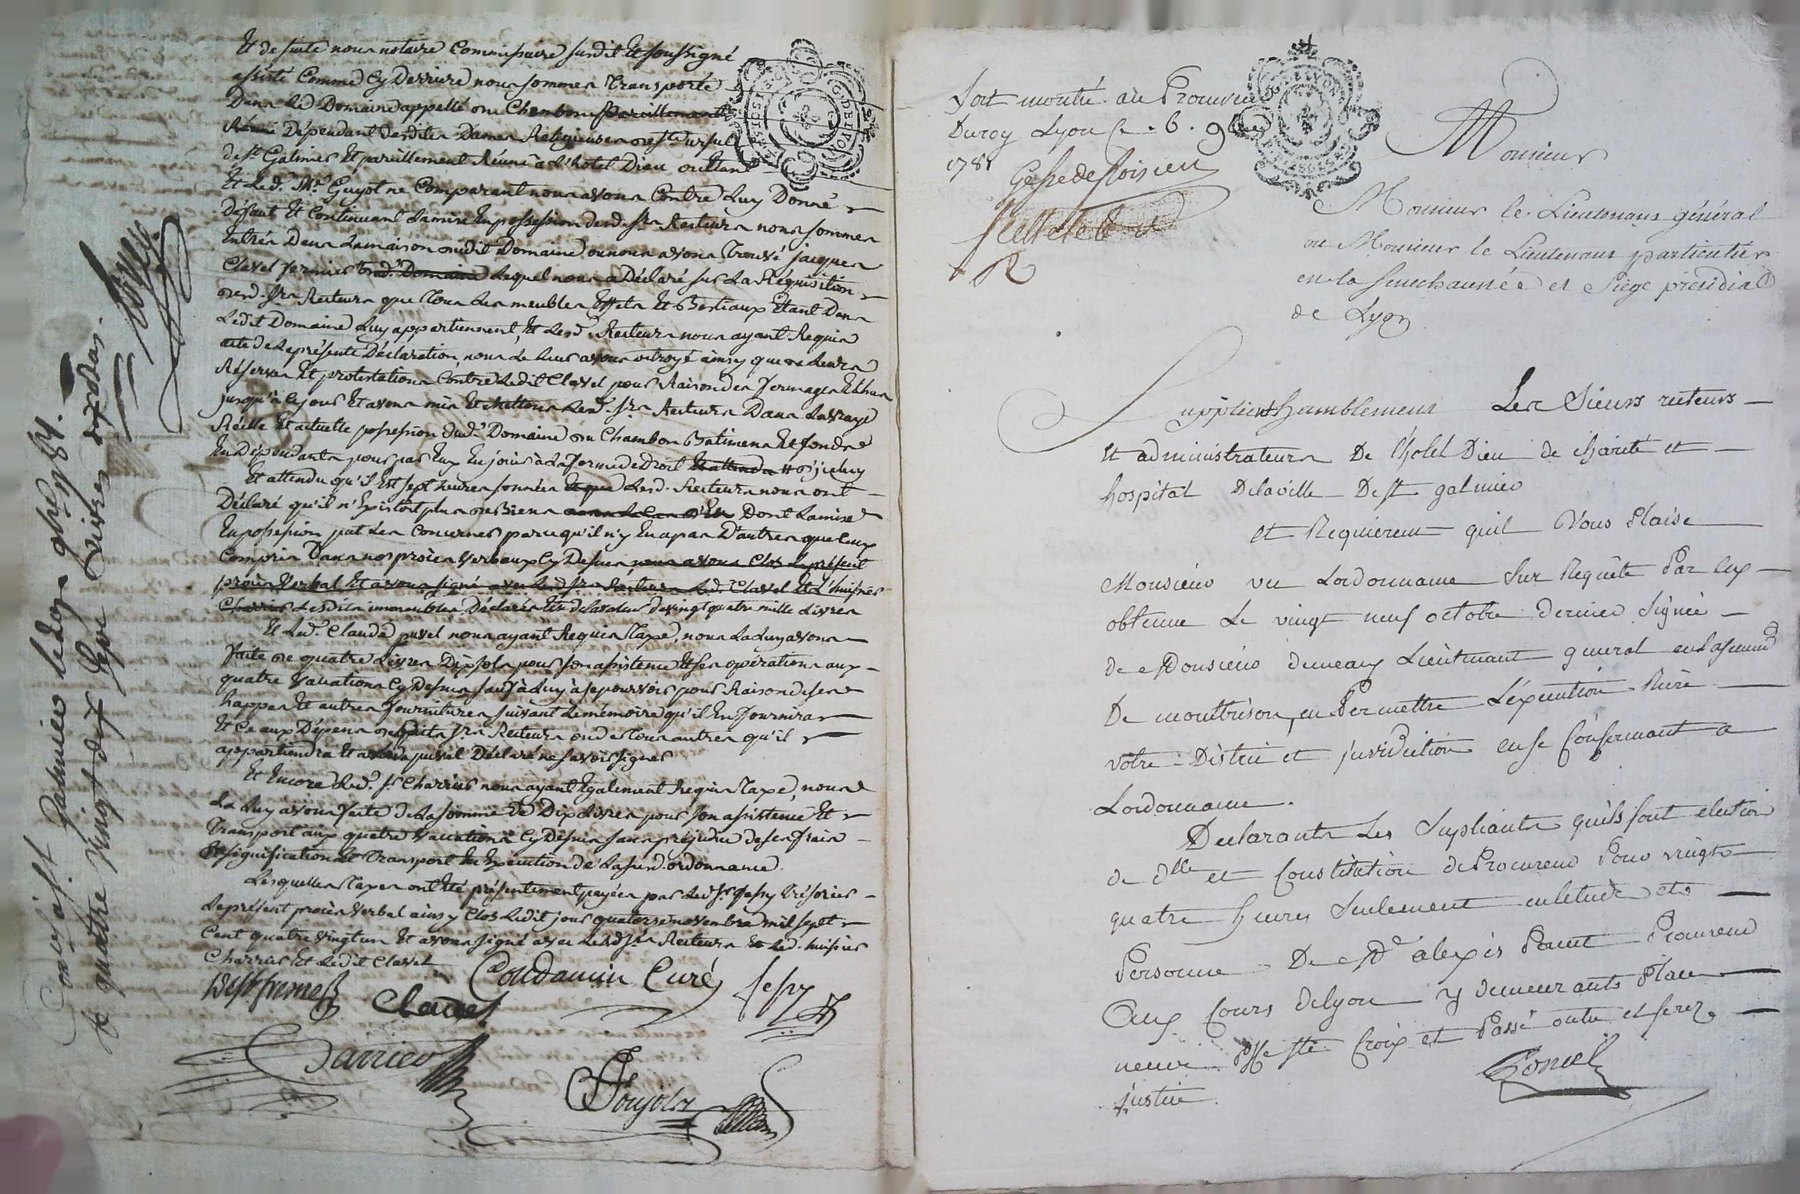 Et de suite nous notaire Commissaire susdit Et soussigné
assisté Comme dit Cy Derriere nous sommes transporté
Dans led Domaine appellé du Chambon pareillement
Réuni Dépendant desdites Dames Religieuses de Ste Ursule
de St Galmier Et pareillement Réuni a L'hotel Dieu
Et led. Me Guyot ne Comparant nous avons Contre Luy Donné
Défaut Et Continuant La mise En possession desd. srs Recteurs nous sommes
Entrés Dans La maison dudit Domaine ou nous avons Trouvé jacques
Clavel fermier dud. Domaine Lequel nous a Déclaré sur La Réquisition
desd. srs Recteurs que Tous Les meubles Effets Et Bestiaux Etant Dans
Ledit Domaine Luy appartiennent, Et Lesd. Recteurs nous ayant Requis
acte de La présente Déclaration nous Le Leur avons octroyé ainsy que de Leurs
Réserves Et protestations Contre Ledit Clavel pour Raison des fermages Echus
jusqu'à ce jour Et avons mis Et Mettons Lesd. srs Recteurs Dans La vraye
Réelle Et actuelle possession dud. Domaine du Chambon Batimens Et fonds
En Dépendants pour par Eux En jouir à La forme de Droit
Et attendu qu'il Est sept heures sonnées Lesd. Recteurs nous ont
Déclaré qu'il n'Existoit plus de Biens Dont La mise
En possession put Les Concerner parce qu'il n'y En a pas D'autres que Ceux
Compris Dans nos procès Verbaux Cy Dessus, nous avons Clos Le présent
procès Verbal Et avons signé avec Lesd. srs Recteurs Led. Clavel Et L'huissier
Charrier Lesdits immeubles Déclarés Etre de La valeur de vingt quatre mille Livres
Et Led. Claude puvel nous ayant Requis Taxe, nous La Luy avons
faite de quatre Livres Dix sols pour son assistence Et ses opérations aux
quatre Vacations Cy Dessus sauf à Luy à se pourvoir pour Raison de ses
happes Et autres fournitures suivant Le mémoire qu'il En fournira
Et Ce aux Dépens desdits srs Recteurs ou de tous autres qu'il
appartiendra Et a Led. puvel Déclaré ne savoir signer
Et Encore Led. sr Charrier nous ayant Egalement Requis Taxe, nous
La Luy avons faite de La somme de Dix Livres pour son assistence Et
Transport aux quatre Vacations Cy Dessus sans préjudice de ses frais
De signification Et Transport En Execution de La susd. ordonnance
Lesquelles Taxes ont Eté présentement payées par Led. sr Jessy Trésorier
Le présent procès Verbal ainsy Clos Ledit jour quatorze novembre mil sept
Cent quatre vingt un Et avons signé avec Lesd. srs Recteurs Et Led. huissier
Charrier Et Ledit Clavel
Clavel
Coudamin Curé
Jessy
Charrier
Controlé à St Galmier le
quatre vingt dix sept Livres
Soit montré au Procureur
Du roy Lyon ce 6. 9bre
1781
Monsieur
Monsieur le Lieutenant général
ou Monsieur le Lieutenant particulier
en la Senechaussée et Siege présidial
de Lyon
Supplient humblement Les Sieurs recteurs
Et administrateurs De L'hotel Dieu de charité et
hospital De la ville De St galmier
et Requierent quil Vous Plaise
Monsieur vu Lordonnance Sur Requête Par Eux
obtenue Le vingt neuf octobre dernier Signée
de Monsieur Demeaux Lieutenant general en la senech
De montbrison, en Permettre L'éxecution Rière
votre District et jurisdiction en se Conformant a
Lordonnance.
Declarants Les Supliants quils font election
de dlle et Constitution de Procureur Pour vingt
quatre heures Seulement en letude et
Personne De Me aléxis Ponct Procureur
Aux Cours de lyon y demeurants Place
neuve Psse Ste Croix et Passé outre et ferez
justice.
Poncet